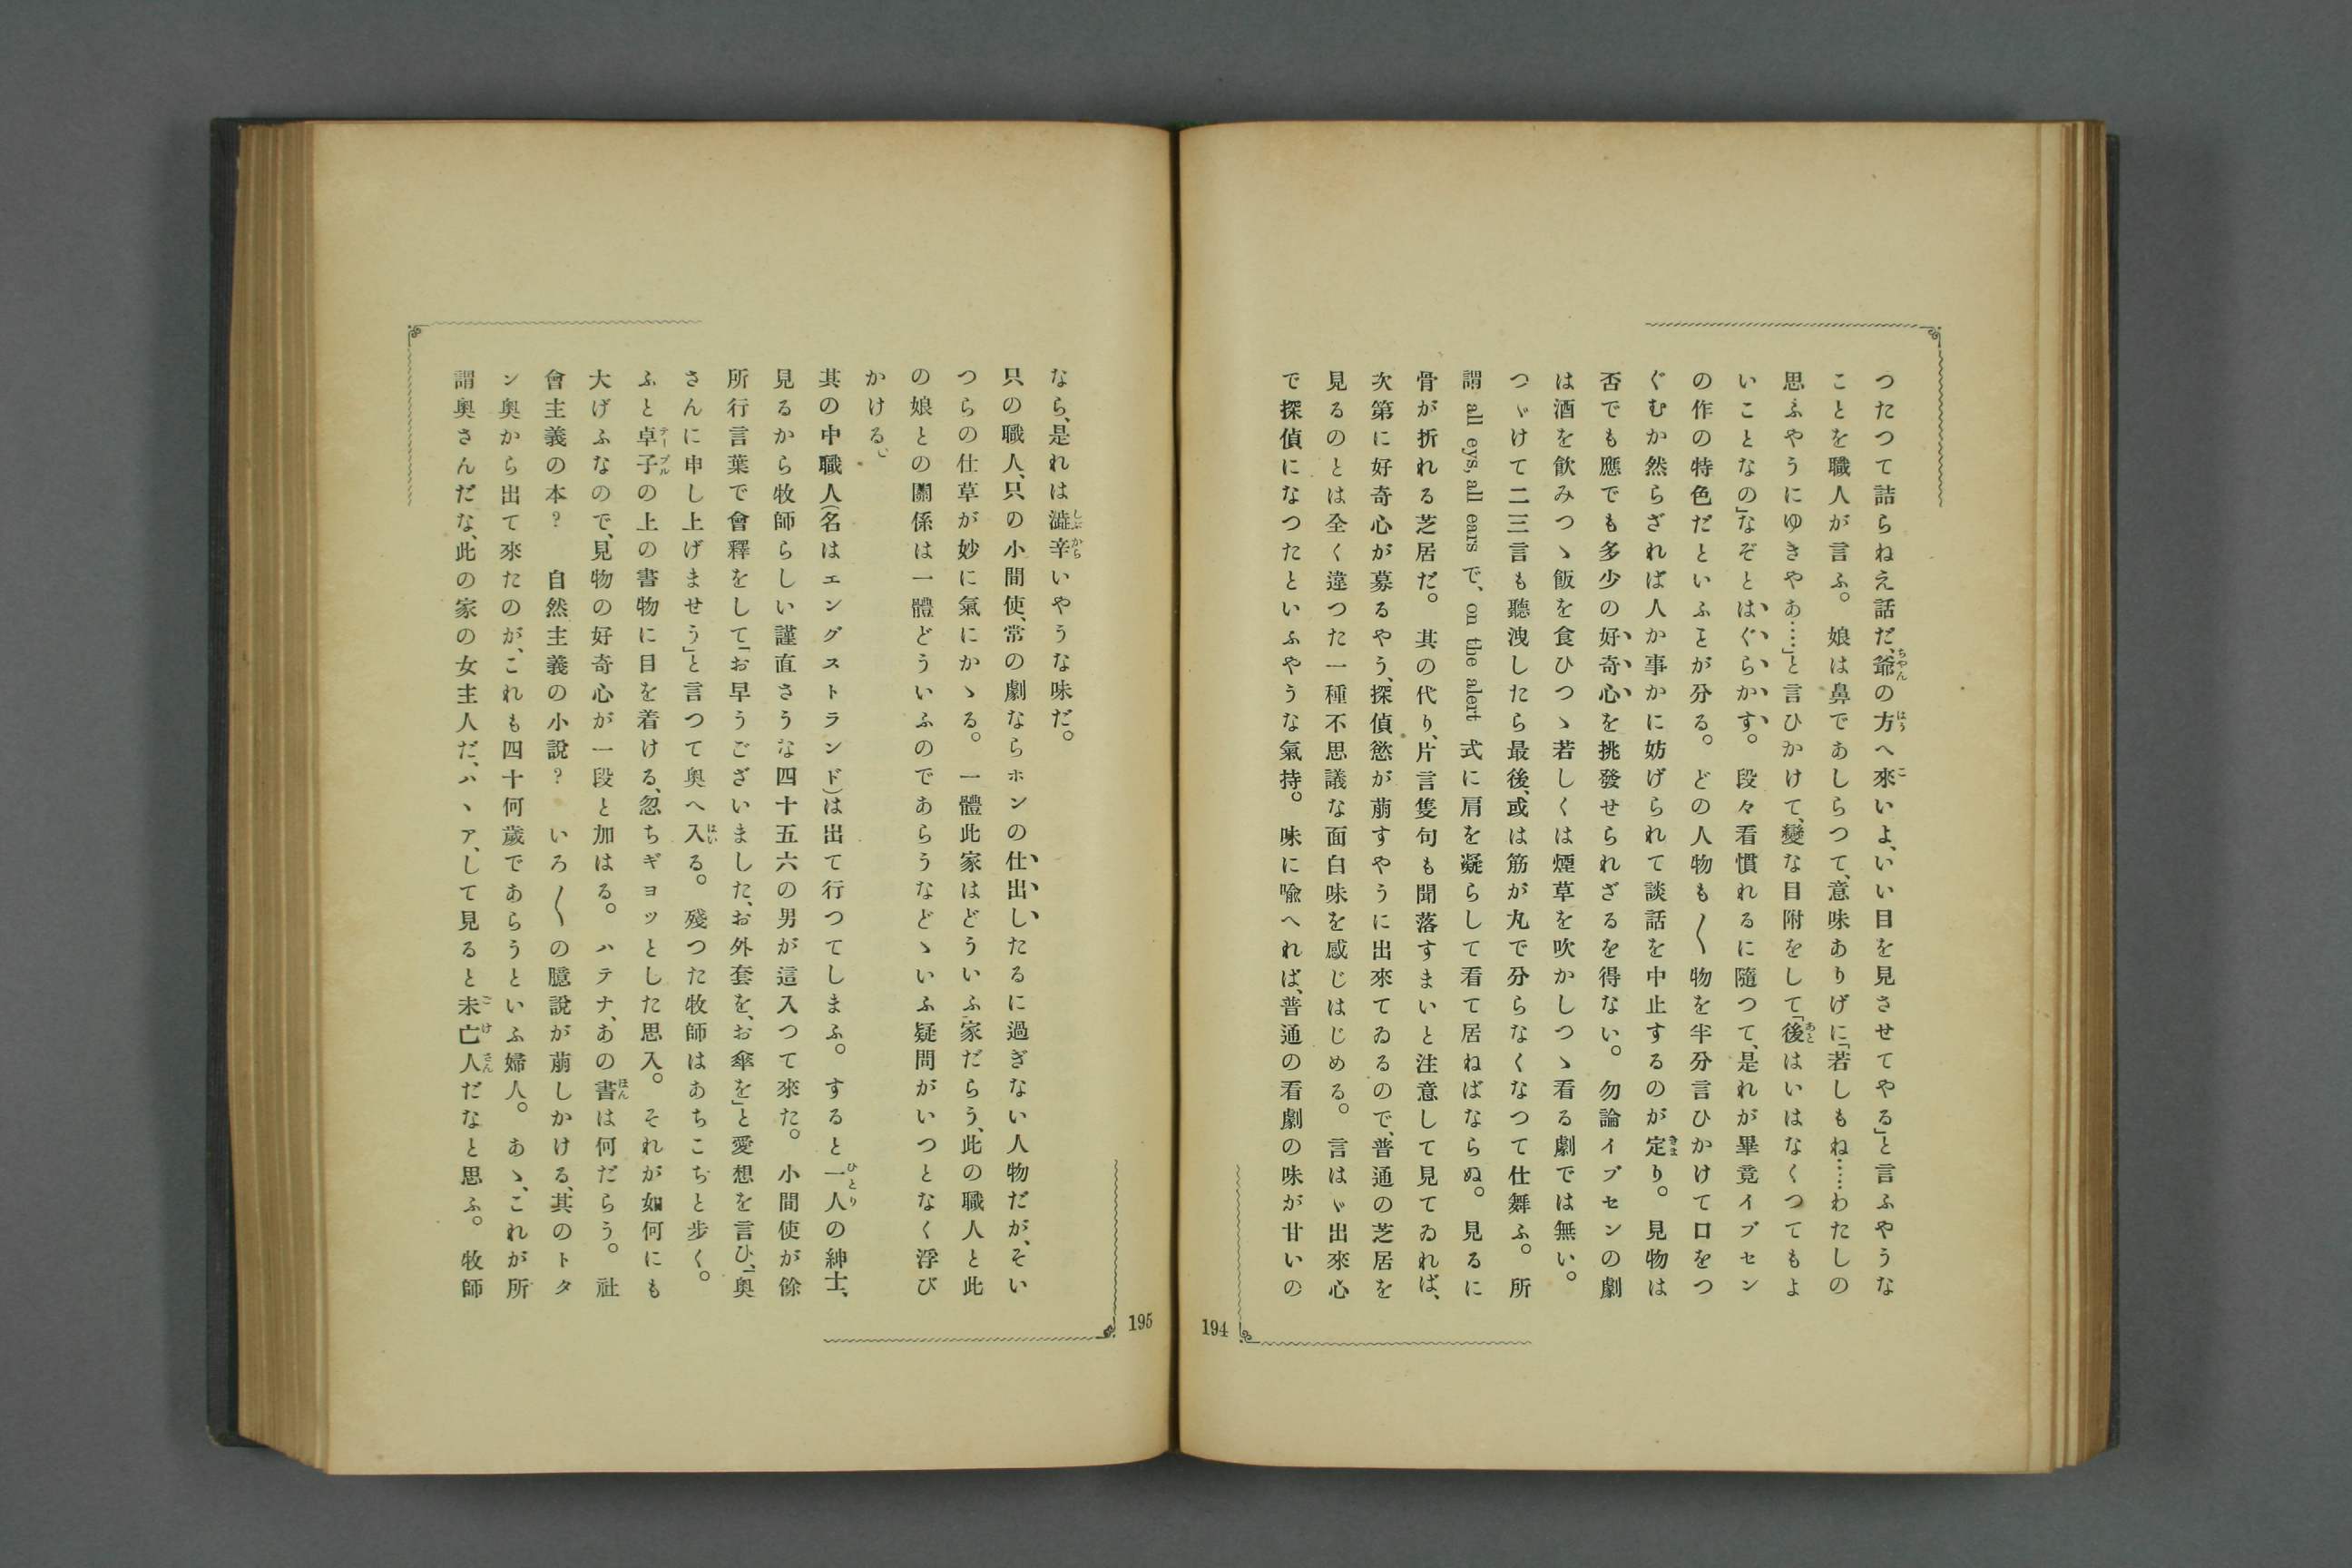 つたつて詰らねえ話だ、爺の方へ來いよ、いい目を見させてやる」と言ふやうな
ことを職人が言ふ。娘は鼻であしらつて、意味ありげに「若しもね……わたしの
思ふやうにゆきやあ……」と言ひかけて、變な目附をして「後はいはなくつてもよ
いことなの」なぞとはぐらかす。段々看慣れるに隨つて、是れが畢竟イブセン
の作の特色だといふことが分る。どの人物も〳〵物を半分言ひかけて口をつ
ぐむか然らざれば人か事かに妨げられて談話を中止するのが定り。見物は
否でも應でも多少の好奇心を挑發せられざるを得ない。勿論イブセンの劇
は酒を飮みつゝ飯を食ひつゝ若しくは煙草を吹かしつゝ看る劇では無い。
つゞけて二三言も聽洩したら最後、或は筋が丸で分らなくなつて仕舞ふ。所
謂 all eys, all ears で、on the alert 式に肩を凝らして看て居ねばならぬ。見るに
骨が折れる芝居だ。其の代り、片言隻句も聞落すまいと注意して見てゐれば、
次第に好奇心が募るやう、探偵慾が萠すやうに出來てゐるので、普通の芝居を
見るのとは全く違つた一種不思議な面白味を感じはじめる。言はゞ出來心
で探偵になつたといふやうな氣持。味に喩へれば、普通の看劇の味が甘いの
194
なら、是れは澁辛いやうな味だ。
只の職人、只の小間使、常の劇ならホンの仕出したるに過ぎない人物だが、そい
つらの仕草が妙に氣にかゝる。一體此家はどういふ家だらう、此の職人と此
の娘との關係は一體どういふのであらうなどゝいふ疑問がいつとなく浮び
かける。
其の中職人(名はエングストランド)は出て行つてしまふ。すると一人の紳士、
見るから牧師らしい謹直さうな四十五六の男が這入つて來た。小間使が餘
所行言葉で會釋をして「お早うございました、お外套を、お傘を」と愛想を言ひ、「奥
さんに申し上げませう」と言つて奥へ入る。殘つた牧師はあちこちと歩く。
ふと卓子の上の書物に目を着ける、忽ちギヨツとした思入。それが如何にも
大げふなので、見物の好奇心が一段と加はる。ハテナ、あの書は何だらう。社
會主義の本？　自然主義の小說？　いろ〳〵の臆說が萠しかける、其のトタ
ン奥から出て來たのが、これも四十何歲であらうといふ婦人。あゝ、これが所
謂奥さんだな、此の家の女主人だ、ハヽア、して見ると未亡人だなと思ふ。牧師
195